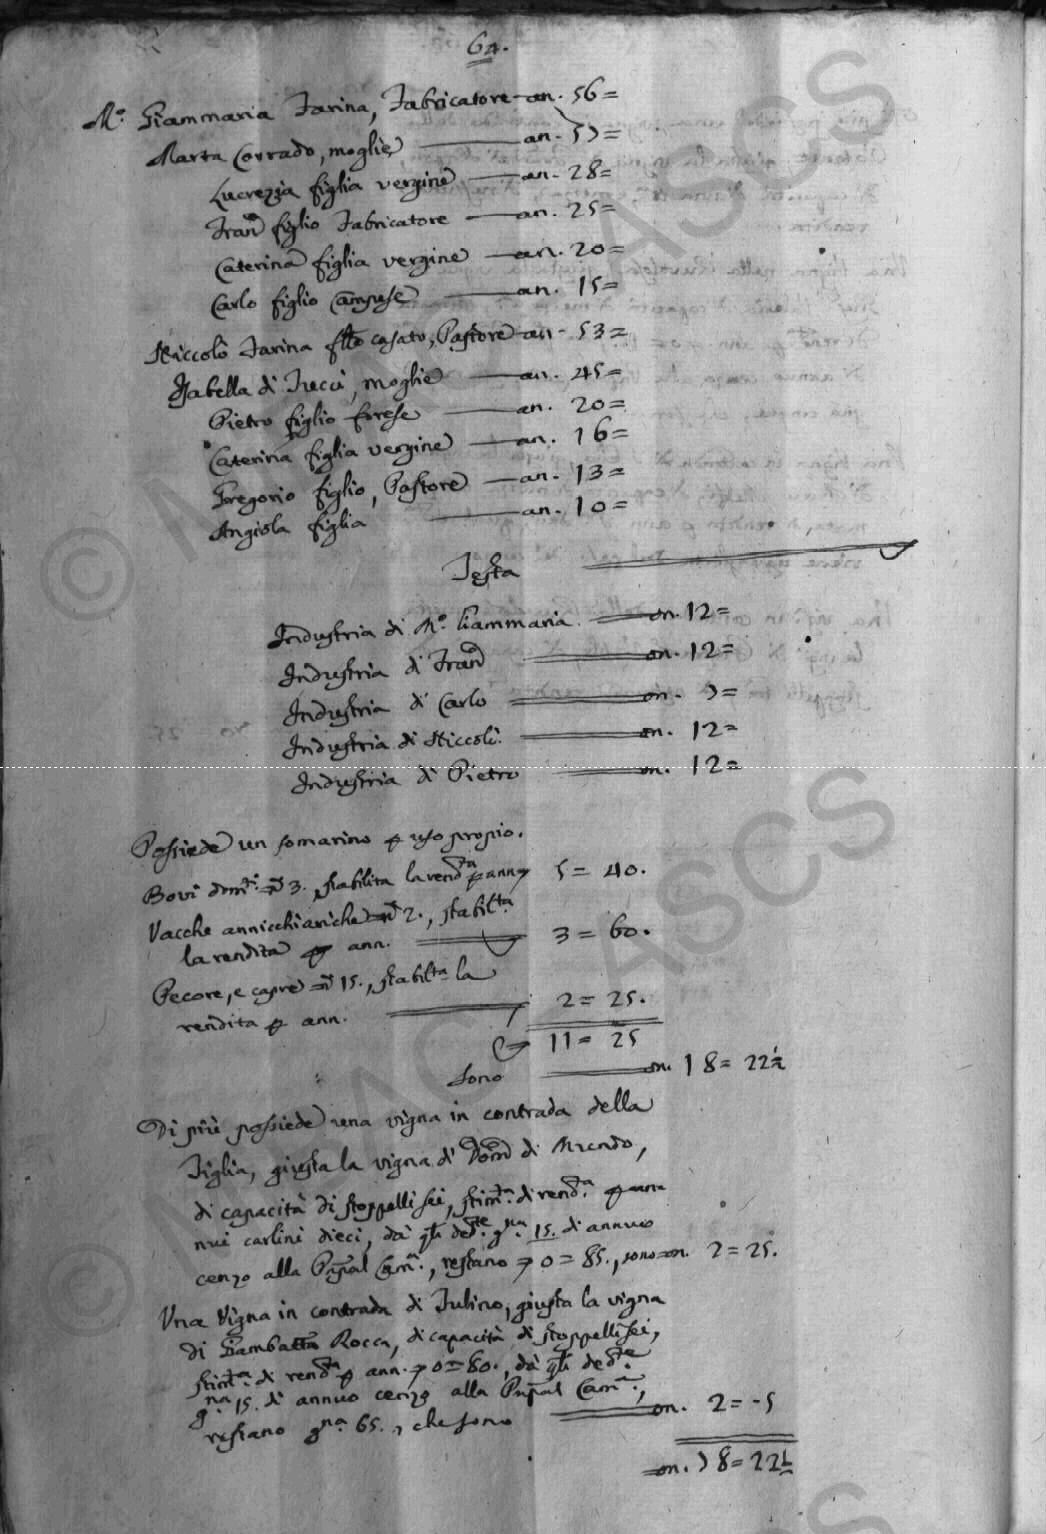 64.
M.º Giammaria Farina, Fabricatore an. 56=
Marta Corrado, moglie an. 57=
Lucrezia figlia vergine an. 28=
Fran.co figlio Fabricatore an. 25=
Caterina figlia vergine an. 20=
Carlo figlio an. 15=
Niccolò Farina casato, Pastore an. 53=
Isabella di Fucci, moglie an. 45=
Pietro figlio forese an. 20=
Caterina figlia vergine an. 16=
Gregorio figlio, Pastore an. 13=
Angiola figlia an. 10=
Testa
Industria di M.º Giammaria on. 12=
Industria di Fran.co on. 12=
Industria di Carlo on. 7=
Industria di Niccolò on. 12=
Industria di Pietro on. 12=
Possiede un somarino p uso propio.
Bovi dom.ti n. 3., stabilita la rend.ta p ann. 5= 40.
Vacche annicchiariche n. 2., stabil.ta
la rendita p ann. 3= 60.
Pecore, e capre n. 15., stabil.ta la
rendita p ann. 2= 25.
11= 25
sono on. 18= 22½
Di più possiede una vigna in contrada della
Tiglia, giusta la vigna di Dom.co di
di capacità di stoppelli sei, stim.ta di rend.ta p an
nui carlini dieci, dà g.na 15. di annuo
cenzo alla Cam.a, restano 0= 85., sono on. 2= 25.
Una Vigna in contrada di Julino, giusta la vigna
di Giambatta Rocca, di capacità di stoppelli sei,
stim.ta di rend.ta p ann. 0= 80., dà
g.na 15. di annuo cenzo alla Cam.a,
restano g.na 65., che sono on. 2= -5
on. 78= 22½
© ASCS
© ASCS